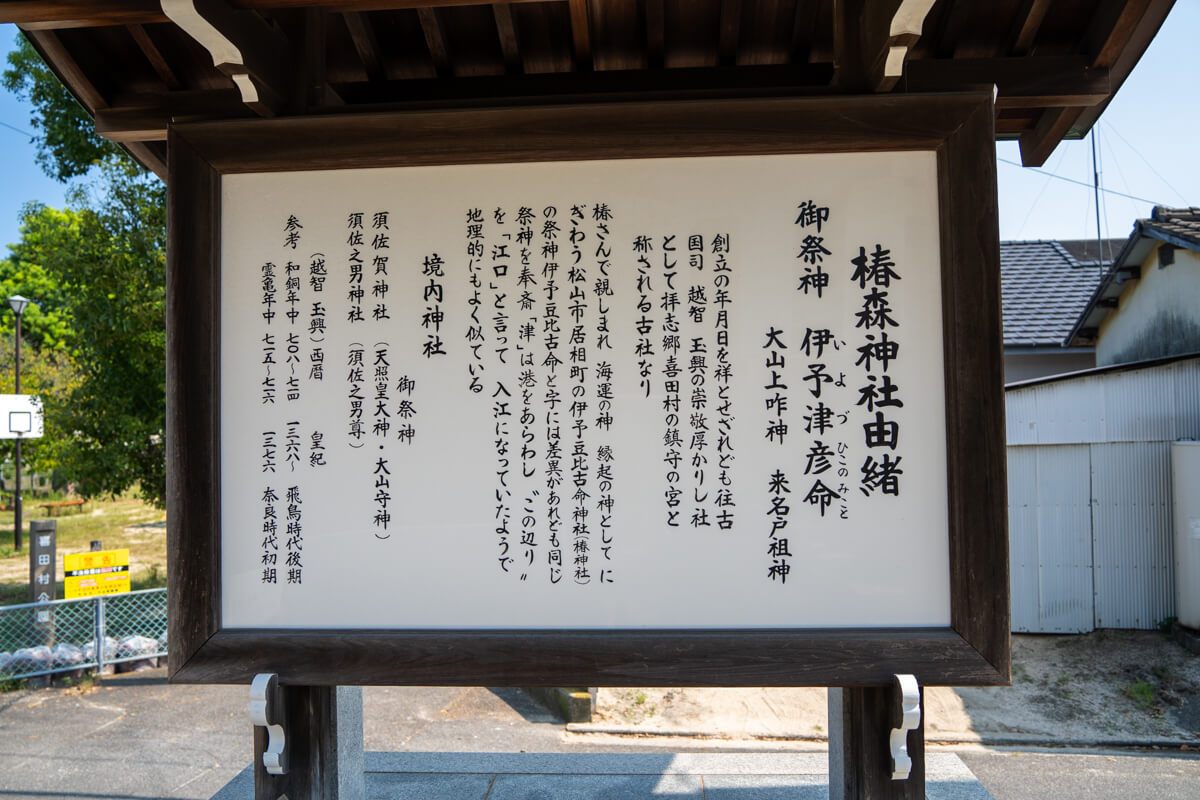 椿森神社由緒
御祭神　伊予津彦命
いよづひこのみこと
大山上咋神　来名戸祖神
創立の年月日を祥とせざれども往古
国司　越智　玉興の崇敬厚かりし社
として拝志郷喜田村の鎮守の宮と
称される古社なり
椿さんで親しまれ　海運の神　縁起の神としてに
ぎわう松山市居相町の伊予豆比古命神社(椿神社)
の祭神伊予豆比古命と字には差異があれども同じ
祭神を奉斎「津」は港をあらわし　〝この辺り〟
を「江口」と言って　入江になっていたようで
地理的にもよく似ている
境内神社
御祭神
須佐賀神社　(天照皇大神・大山守神)
須佐之男神社　(須佐之男尊)
参考
(越智　玉興)西暦　皇紀
和銅年中　七〇八~七一四　一三六八~　飛鳥時代後期
霊亀年中　七一五~七一六　一三七六　奈良時代初期
喜田村公園